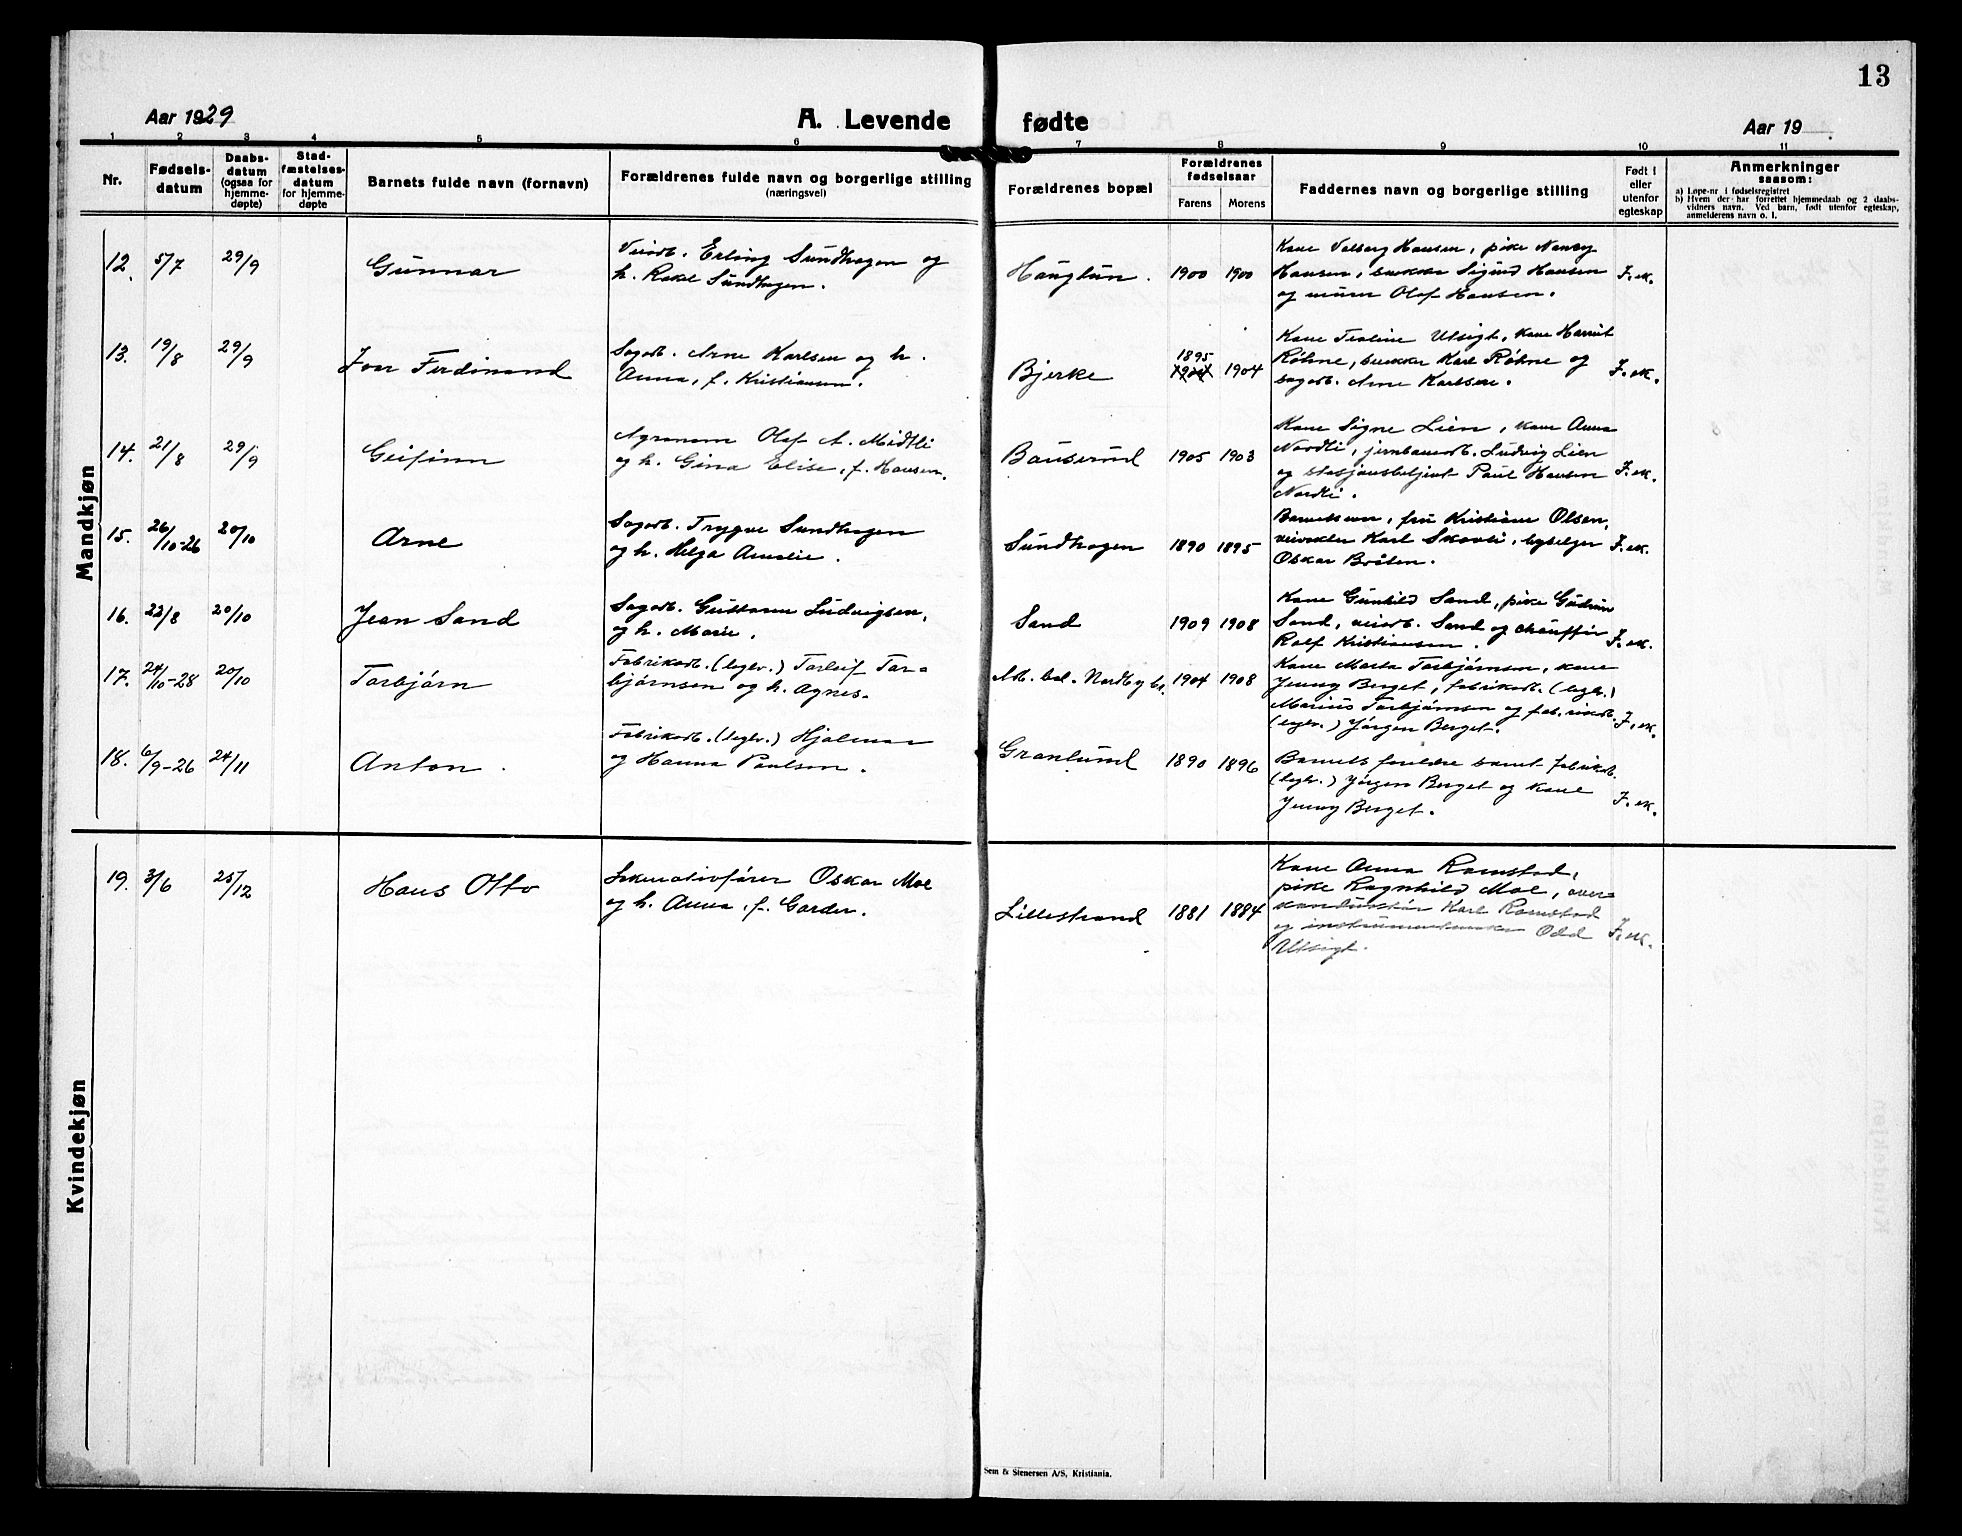 13
Aar 1929
A. Levende
fødte
Aar 19
1 2 3 4 5 6 7 8 9 10 11
Nr.
Fødsels-
datum
Daabs-
datum
(ogsaa for
hjemme-
døpte)
Stad-
fæstelses-
datum
for hjemme-
døpte
Barnets fulde navn (fornavn)
Forældrenes fulde navn og borgerlige stilling
(næringsvei)
Forældrenes bopæl
Forældrenes
fødselsaar
Farens Morens
Faddernes navn og borgerlige stilling
Født i
eller
utenfor
egteskap
Anmerkninger
saasom:
a) Løpe-nr. i fødselsregistret
b) Hvem der har forrettet hjemmedaab og 2 daabs-
vidners navn. Ved barn, født utenfor egteskap,
anmelderens navn o. l.
Mandkjøn
12. 5/7 29/9
Gunnar
Erling Sundhagen og
h. Rakel Sundhagen.
Hauglun. 1900 1900
Kone Valborg Hansen, pike Nancy
Hansen, snekker Sigurd Hansen
og murer Olaf Hansen.
F. ek.
13. 19/8 29/9
Ferdinand
Sagarb. Arne Karlsen og h.
Anna, f. Kristiansen.
Bjerke 1895 1904 1904
Kone Utsigt, kone Harriet
Røhne, snekker Karl Røhne og
sagarb. Arne Karlsen.
F. ek.
14. 21/8 29/9
Geifinn
Agronom Olaf A. Midtli
og h. Gina Elise, f. Hansen.
Bauserud 1905 1903
Kone Signe Lien, kone Anna
Nordli, jernbanearb. Ludvig Lien
og stasjonsbetjent Paul Hansen
Nordli.
F. ek.
15. 26/10-26 20/10
Arne
Sagarb. Trygve Sundhagen
og h. Helga Amalie.
Sundhagen 1890 1895
Barnets mor, fru Kristiane Olsen,
Karl Skovli,
Oskar Bråten.
F. ek.
16. 22/8 20/10
Jean Sand
Sagarb. Gustav Ludvigsen,
og h. Marie.
Sand 1909 1908
Kone Gunhild Sand, pike Gudrun
Sand, Sand og chauffør
Rolf Kristiansen.
F. ek.
17. 24/10-28 20/10
Torbjørn
Fabrikarb. (leglv.) Torleif Tor-
bjørnsen og h. Agnes.
Nordby br. 1904 1908
Kone Marta Torbjørnsen, kone
Jenny Berget, fabrikarb. (leglv.)
Marius Torbjørnsen og fabrikarb.
(leglv.) Jørgen Berget.
F. ek.
18. 6/9-26 24/11
Anton.
Fabrikarb. (leglv.) Hjalmar
og Hanna Paulsen.
Granlund 1890 1896
Barnets foreldre samt fabrikarb.
(leglv.) Jørgen Berget og kone
Jenny Berget.
F. ek.
Kvindekjøn
19. 3/6 25/12
Hans Otto
Lokomotivfører Oskar Moe
og h. Anna, f. Garder.
Lillestrand 1881 1884
Kone Anna Ramstad,
pike Ragnhild Moe, over-
konduktør Karl Ramstad
og instrumentmaker Odd
Utsigt.
F. ek.
Sem & Stenersen A/S, Kristiania.